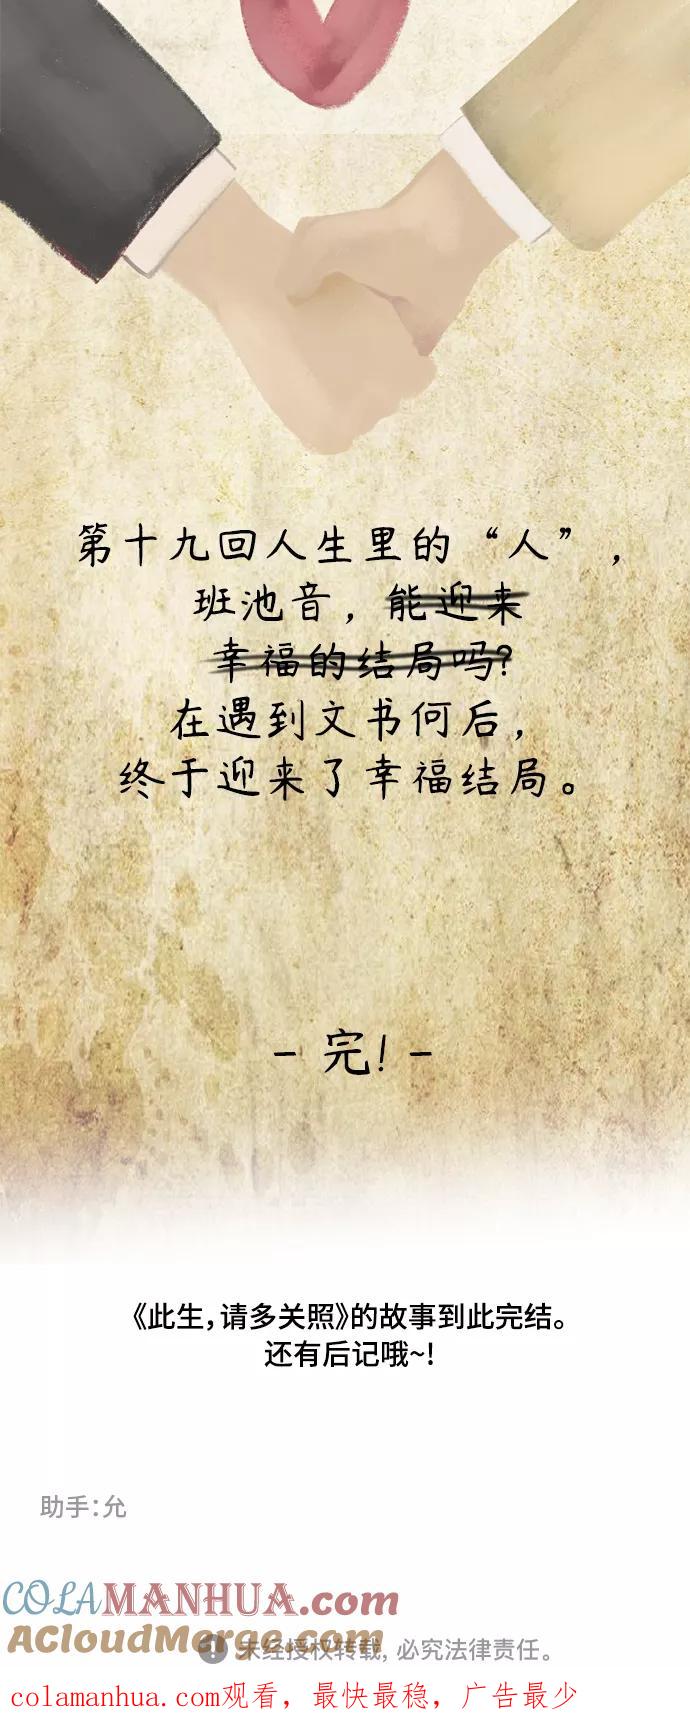 第十九回人生里的“人”，
班池音，能迎来
幸福的结局吗?
在遇到文书何后，
终于迎来了幸福结局。
- 完! -
《此生,请多关照》的故事到此完结。
还有后记哦~!
助手:允
COLAMANHUA.com
AcloudMerge.com
! 未经授权转载, 必究法律责任。
colamanhua.com观看，最快最稳，广告最少